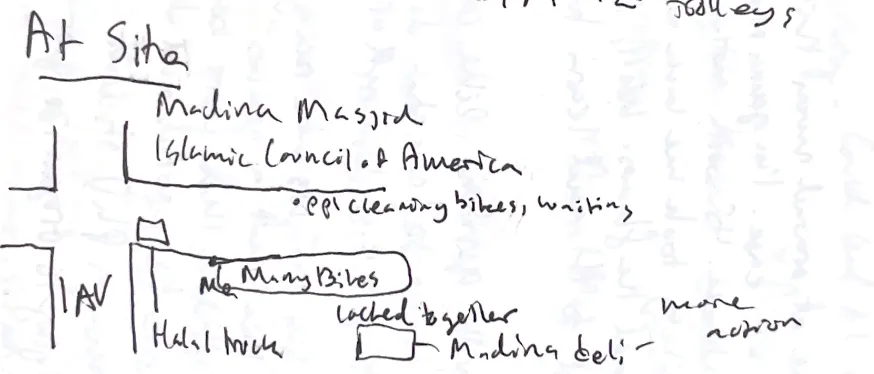 Jeys
At Site
Madina Masjid
Islamic Council of America
• ppl cleaning bikes, waiting
1 AV
Me
Many Bikes
Locked together
Halal truck
Madina deli -
more
action